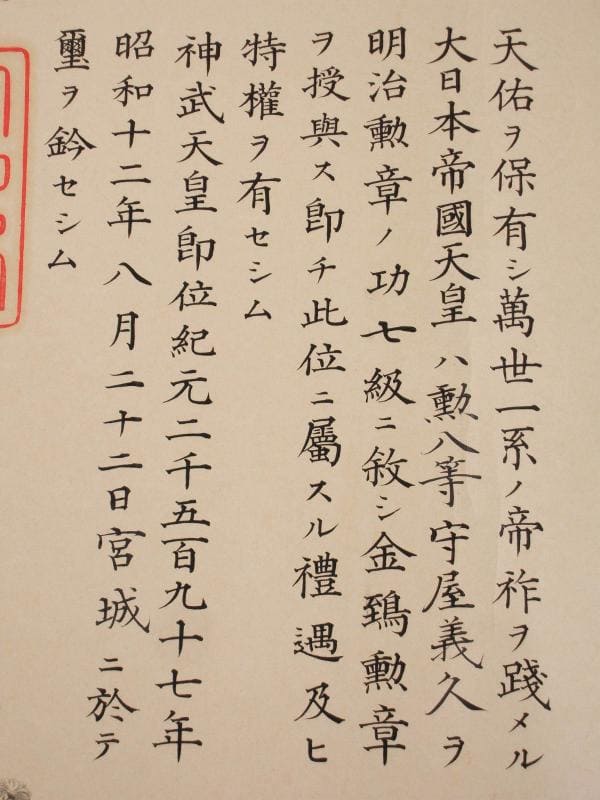 天佑ヲ保有シ萬世一系ノ帝祚ヲ踐メル
大日本帝國天皇ハ勲八等守屋義久ヲ
明治勲章ノ功七級ニ敘シ金鵄勲章
ヲ授與ス即チ此位ニ屬スル禮遇及ヒ
特權ヲ有セシム
神武天皇即位紀元二千五百九十七年
昭和十二年八月二十二日宮城ニ於テ
璽ヲ鈐セシム